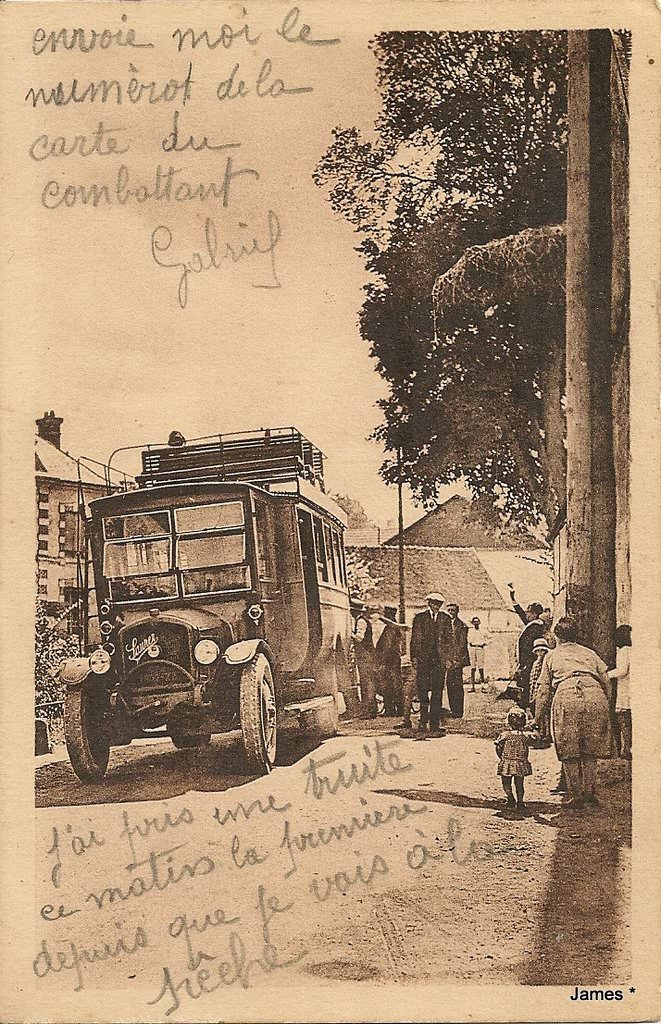 envoie moi le
numérot de la
carte du
combattant
Gabriel
Laurer
j'ai pris une truite
ce matin la première
depuis que je vais à la
pêche
James *